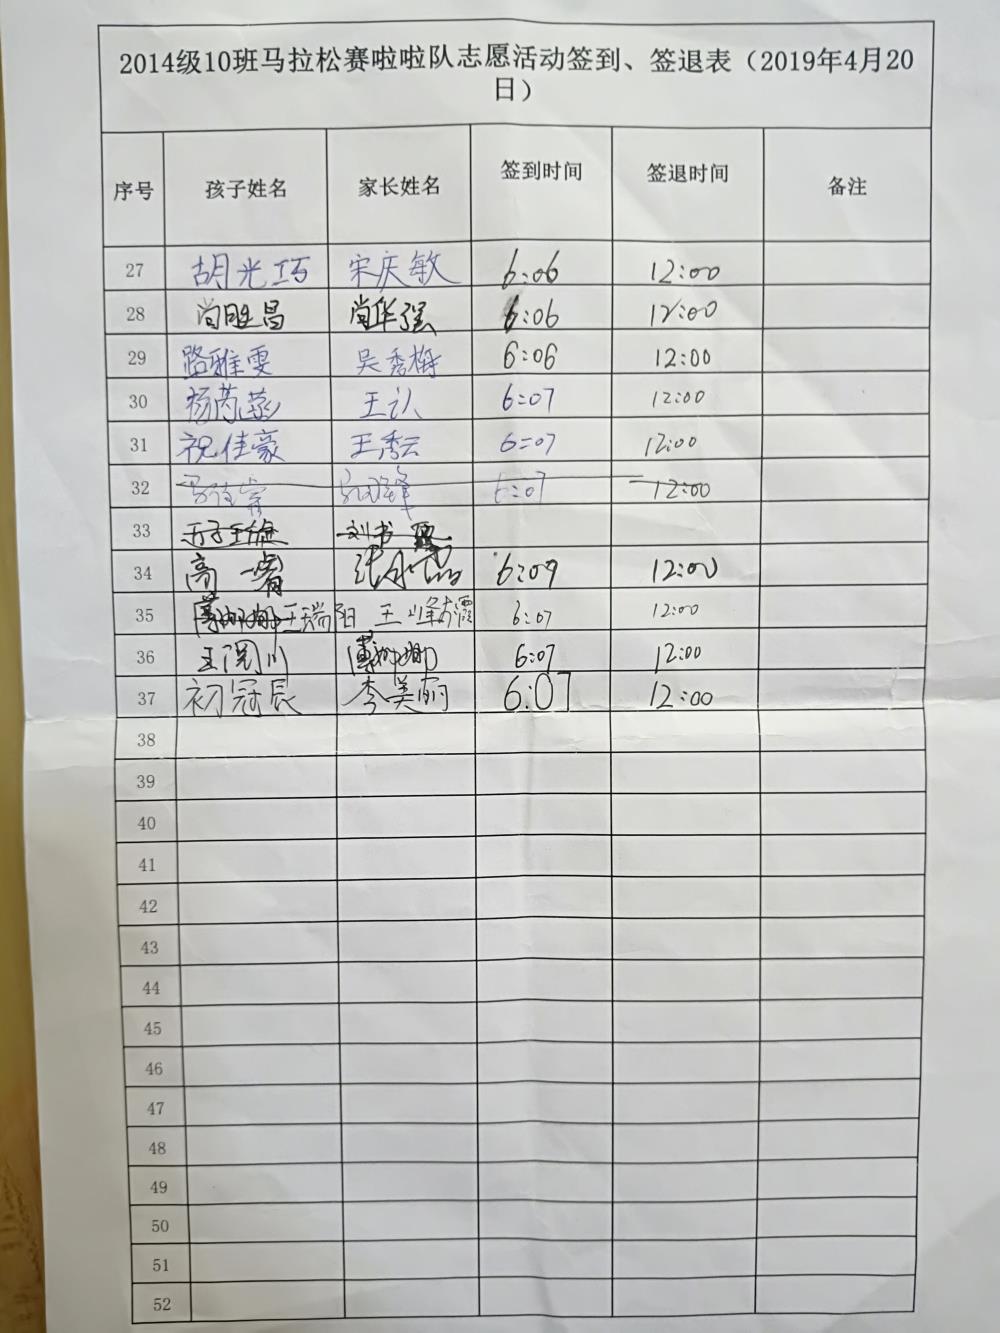 2014级10班马拉松赛啦啦队志愿活动签到、签退表（2019年4月20
日）
序号 孩子姓名 家长姓名 签到时间 签退时间 备注
27 胡光巧 宋庆敏 6:06 12:00
28 尚胜昌 尚华强 6:06 12:00
29 路雅雯 吴秀梅 6:06 12:00
30 杨芮蕊 王认 6:07 12:00
31 祝佳豪 王秀云 6:07 12:00
32 6:07 12:00
33 刘书
34 高一睿 6:07 12:00
35 王瑞阳 王峰 6:07 12:00
36 王润川 6:07 12:00
37 初冠辰 李美丽 6:07 12:00
38
39
40
41
42
43
44
45
46
47
48
49
50
51
52